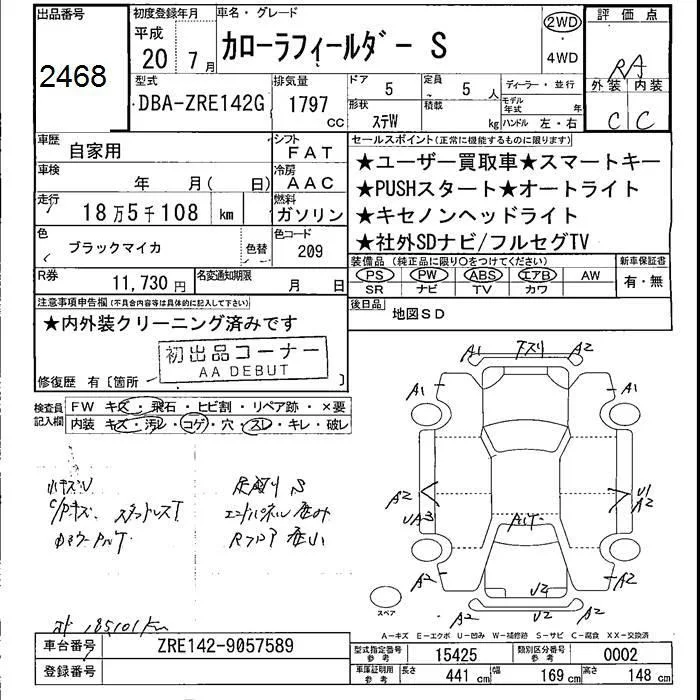 出品番号
2468
初度登録年月
平成
20 年 7 月
車名・グレード
カローラフィールダー S
2WD
・
4WD
評価点
RA
外装 内装
C C
型式
DBA-ZRE142G
排気量
1797 CC
ドア
5
形状
ステW
定員
5 人
積載
kg
ディーラー・並行
モデル年式 年
ハンドル 左・右
車歴
自家用
シフト
FAT
車検
年 月( 日)
冷房
AAC
走行
18万5千108 km
燃料
ガソリン
色
ブラックマイカ
色替
色コード
209
R券
11,730 円
名変通知期限
月 日
セールスポイント(正常に機能するものに限ります)
★ユーザー買取車★スマートキー
★PUSHスタート★オートライト
★キセノンヘッドライト
★社外SDナビ/フルセグTV
装備品 (純正品に限り○をつけてください)
PS PW ABS エアB AW
SR ナビ TV カワ
新車保証書
有・無
後日品
地図SD
注意事項申告欄(不具合内容等は具体的に記入して下さい)
★内外装クリーニング済みです
初出品コーナー
AA DEBUT
修復歴 有〔箇所 〕
検査員記入欄
FW キズ・飛石・ヒビ割・リペア跡・×要
内装 キズ・汚レ・コゲ・穴・スレ・キレ・破レ
A1 下スリ A2
A1 A1
A2 UA3
U1 A2
A1T
A2 A2
U2
A2 U2 A2
スペア
185101 km
A-キズ E-エクボ U-凹み W-補修跡 S-サビ C-腐食 XX-交換済
車台番号
ZRE142-9057589
登録番号
型式指定番号
参考
15425
類別区分番号
参考
0002
車庫証明用
参考
長さ 441 cm 幅 169 cm 高さ 148 cm